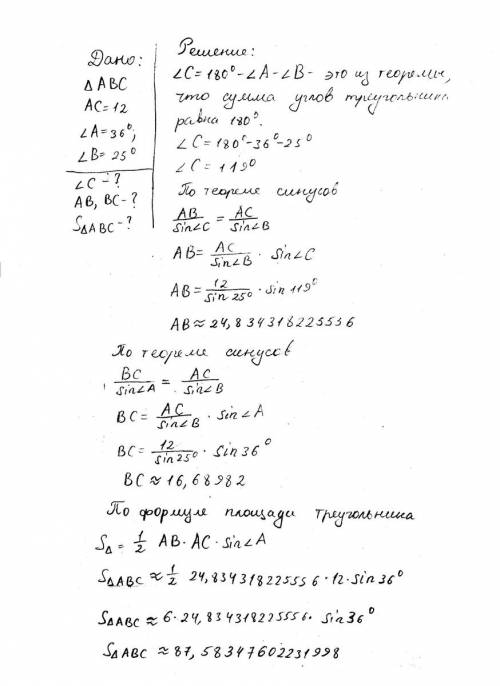 Дано:
Δ ABC
AC=12
∠A=36°;
∠B=25°
∠C-?
AB, BC-?
SΔABC-?
Решение:
∠C=180°-∠A-∠B- это из теоремы,
что сумма углов треугольника
равна 180°.
∠C=180°-36°-25°
∠C=119°
По теореме синусов
AB/sin∠C = AC/sin∠B
AB= AC/sin∠B · sin∠C
AB= 12/sin25° · sin119°
AB≈24,834318225556
По теореме синусов
BC/sin∠A = AC/sin∠B
BC= AC/sin∠B · sin∠A
BC= 12/sin25° · sin36°
BC≈16,68982
По формуле площади треугольника
SΔ= 1/2 AB·AC·sin∠A
SΔABC≈ 1/2 24,834318225556·12·sin36°
SΔABC≈6·24,834318225556· sin36°
SΔABC≈87,58347602231998